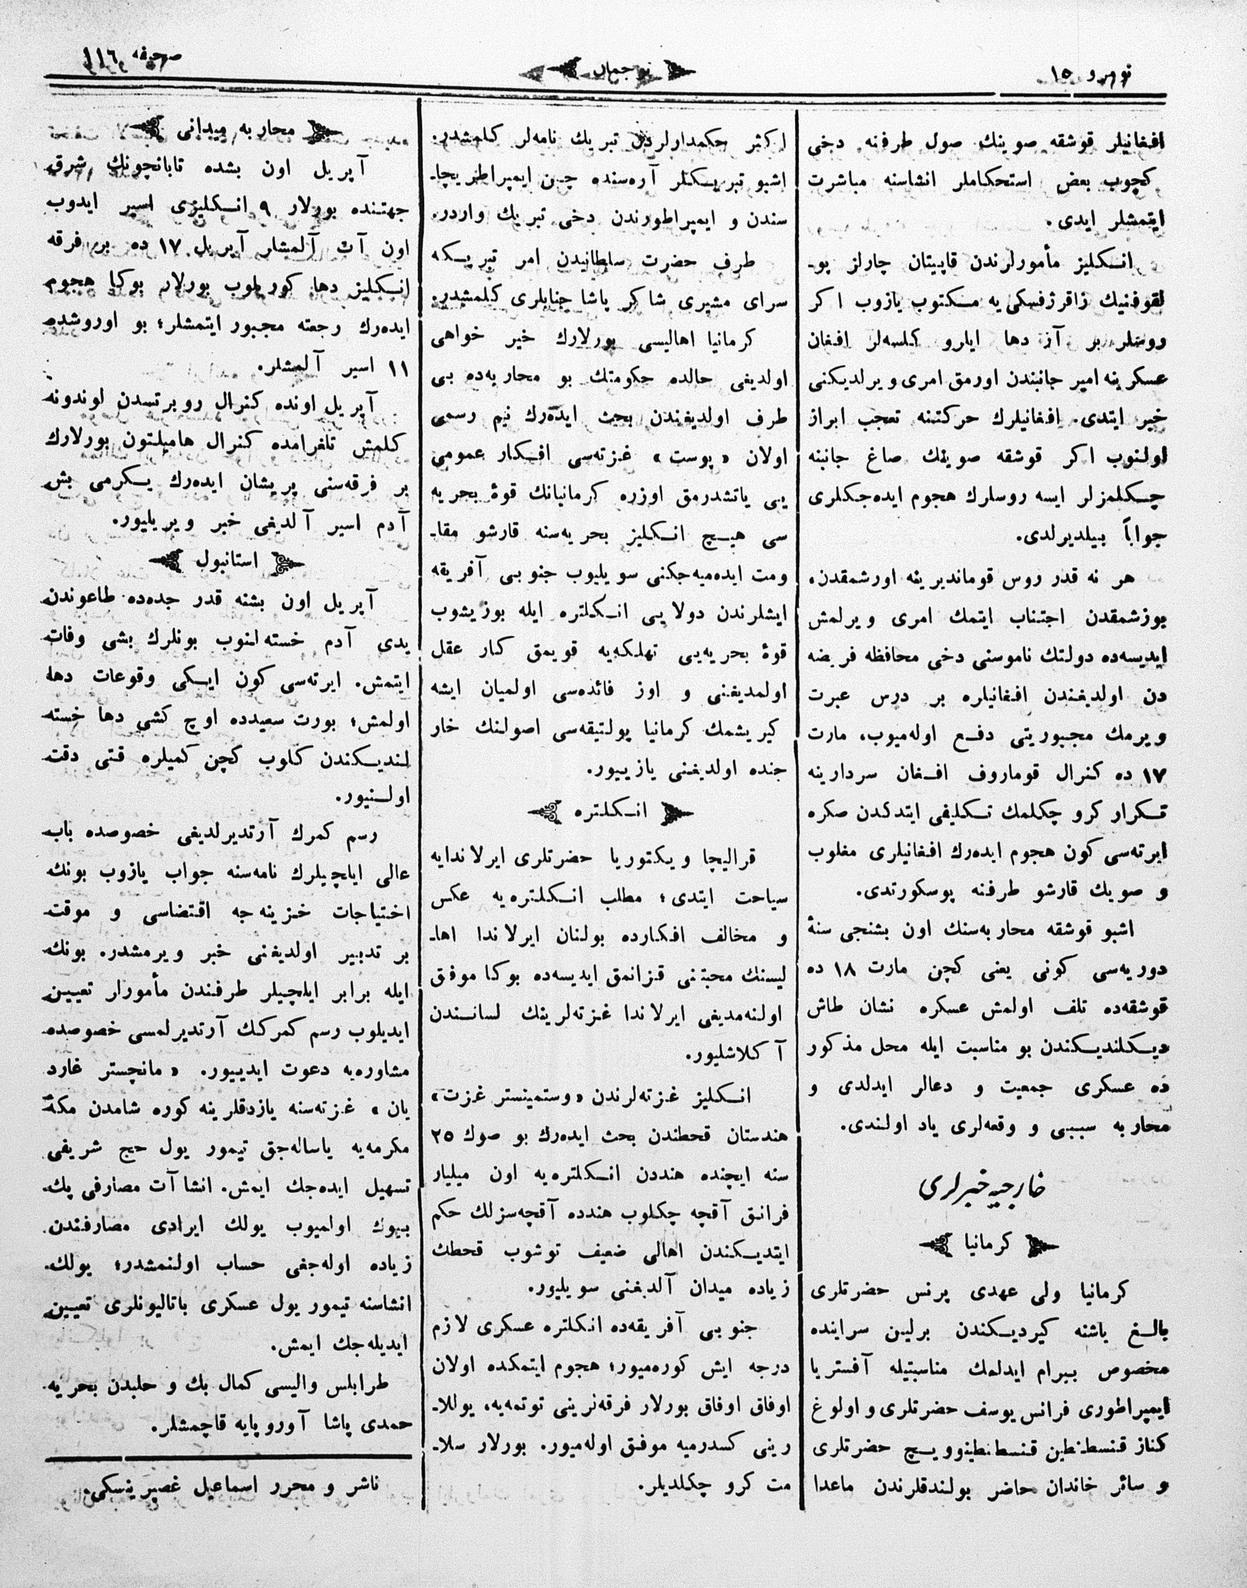 نومرو ١٥
ترجمان
صحیفه ١١٦
افغانیلر قوشقه صوینك صول طرفنه دخی
كچوب بعض استحكاملر انشاسنه مباشرت
ایتمشلر ایدی.
انـكلیز مأمورلرندن قاپیتان چارلز یو-
لقوفنیك زاقرژفسكی یه مـكتوب یازوب اكر
روسلر بر آز دها ایلرو كلسه‌لر افغان
عسكرینه امیر جانبندن اورمق امری ویرلدیكنی
خبر ایتدی. افغانیلرك حركتنه تعجب ابراز
اولنوب اكر قوشقه صوینك صاغ جانبنه
چـكلمزلر ایسه روسلرك هجوم ایده‌جكلری
جواباً بیلدیرلدی.
هر نه قدر روس قوماندیرینه اورشمقدن،
بوزشمقدن اجتناب ایتمك امری ویرلمش
ایدیسه‌ده دولتك ناموسنی دخی محافظه فریضه
دن اولدیغندن افغانیلره بر درس عبرت
ویرمك مجبوریتی دفـع اوله‌میوب، مارت
١٧ ده كنرال قوماروف افـغان سردارینه
تـكرار كرو چكلمك تـكلیفی ایتدكدن صكره
ایرته‌سی كون هجوم ایده‌رك افغانیلری مغلوب
و صویك قارشو طرفنه پوسكورتدی.
اشبو قوشقه محاربه‌سنك اون بشنجی سنۀ
دوریه‌سی كونی یعنی كچن مارت ١٨ ده
قوشقه‌ده تلف اولمش عسكره نشان طاش
دیـكلندیـكندن بو مناسبت ایله محل مذكور
ده عسكری جمعیت و دعالر ایدلدی و
محاربه سببی و وقعه‌لری یاد اولندی.
خارجیه خبرلری
كرمانیا
كرمانیا ولی عهدی پرنس حضرتلری
بالـغ یاشنه كیردیـكندن برلین سراینده
مخصوص بیرام ایدلمك مناسبتیله آفستریا
ایمپراطوری فرانس یوسف حضرتلری و اولوغ
كناز قنسطنطین قنسطنطینوویـچ حضرتلری
و سائر خاندان حاضر بولندقلرندن ماعدا
اكثر حكمدارلردن تبریك نامه‌لر كلمشدر.
اشبو تبریـكلر آره‌سنده چین ایمپراطریچا-
سندن و ایمپراطورندن دخی تبریك واردر.
طرف حضرت سلطانیدن امر تبریـكه
سرای مشیری شاكر پاشا جنابلری كلمشدر.
كرمانیا اهالیسی بورلارك خیر خواهی
اولدیغی حالده حكومتك بو محاربه‌ده بی
طرف اولدیغندن بحث ایده‌رك نیم رسمی
اولان «پوست» غزته‌سی افـكار عمومی
یی یاتشدرمق اوزره كرمانیانك قوۀ بحریه
سی هیـچ انـكلیز بحریه‌سنه قارشو مقا-
ومت ایده‌میه‌جكنی سویلیوب جنوبی آفریقه
ایشلرندن دولایی انـكلتره ایله بوزیشوب
قوۀ بحریه‌یی تهلكه‌یه قویمق كار عقل
اولمدیغنی و اوز فائده‌سی اولمیان ایشه
كیریشمك كرمانیا پولتیقه‌سی اصولنك خار
جنده اولدیغنی یازییور.
انـكلتره
قرالیچا ویكتوریا حضرتلری ایرلاندایه
سیاحت ایتدی؛ مطلب انـكلتره‌یه عكس
و مخالف افكارده بولنان ایرلاندا اها-
لیسنك محبتنی قزانمق ایدیسه‌ده بوكا موفق
اولنه‌مدیغی ایرلاندا غزته‌لرینك لسانـدن
آكلاشلیور.
انـكلیز غزته‌لرندن «وستمینستر غزت»
هندستان قحطندن بحث ایده‌رك بو صوك ٢٥
سنه ایچنده هنددن انـكلتره‌یه اون میلیار
فرانق آقچه چكلوب هندده آقچه‌سزلك حكم
ایتدیـكندن اهالی ضعیف توشوب قحطك
زیاده میدان آلدیغنی سویلیور.
جنوبی آفریقه‌ده انكلتره عسكری لازم
درجه ایش كوره‌میور؛ هجوم ایتمكده اولان
اوفاق اوفاق بورلار فرقه‌لرینی توتمه‌یه، یوللا-
رینی كسدرمیه موفق اوله‌میور. بورلار سلا-
مت كرو چكلدیلر.
محاربه میدانی
آپریل اون بشده تابانچونك شرق
جهتنده بورلار ٩ انـكلیزی اسیر ایدوب
اون آت آلمشلر آپریل ١٧ ده بر فرقه
انـكلیز دها كوریلوب بورلار بوكا هجوم
ایده‌رك رجعته مجبور ایتمشلر؛ بو اوروشده
١١ اسیر آلمشلر.
آپریل اونده كنرال روبرتسدن لوندونه
كلمش تلغرامده كنرال هامیلتون بورلارك
بر فرقه‌سنی پریشان ایده‌رك یـكرمی بش
آدم اسیر آلدیغی خبر ویریلیور.
استانبول
آپریل اون بشنه قدر جده‌ده طاعوندن
یدی آدم خسته‌لنوب بونلرك بشی وفات
ایتمش. ایرته‌سی كون ایـكی وقوعات دها
اولمش؛ بورت سعیدده اوچ كشی دها خسته
لندیـكندن كلوب كچن كمیلره قتی دقت
اولـنیور.
رسم كمرك آرتدیرلدیغی خصوصده باب
عالی ایلچیلرك نامه‌سنه جواب یازوب بونك
اختیاجات خزینه‌جه اقتضاسی و موقت
بر تدبیر اولدیغنی خبر ویرمشدر. بونك
ایله برابر ایلچیلر طرفندن مأمورلر تعیین
ایدیلوب رسم كمركك آرتدیرلمسی خصوصده
مشاوره‌یه دعوت ایدییور. «مانچستر غارد
یان» غزته‌سنه یازدقلرینه كوره شامدن مكۀ
مكرمه‌یه یاساله‌جق تیمور یول حج شریفی
تسهیل ایده‌جك ایمش. انشاآت مصارفی پك
بیوك اولمیوب یولك ایرادی مصارفندن
زیاده اوله‌جغی حساب اولنمشدر؛ یولك
انشاسنه تیمور یول عسكری باتالیونلری تعیین
ایدیله‌جك ایمش.
طرابلس والیسی كمال بك و حلبدن بحریه
حمدی پاشا آوروپایه قاچمشلر.
ناشر و محرر اسماعیل غصپرینسكی.